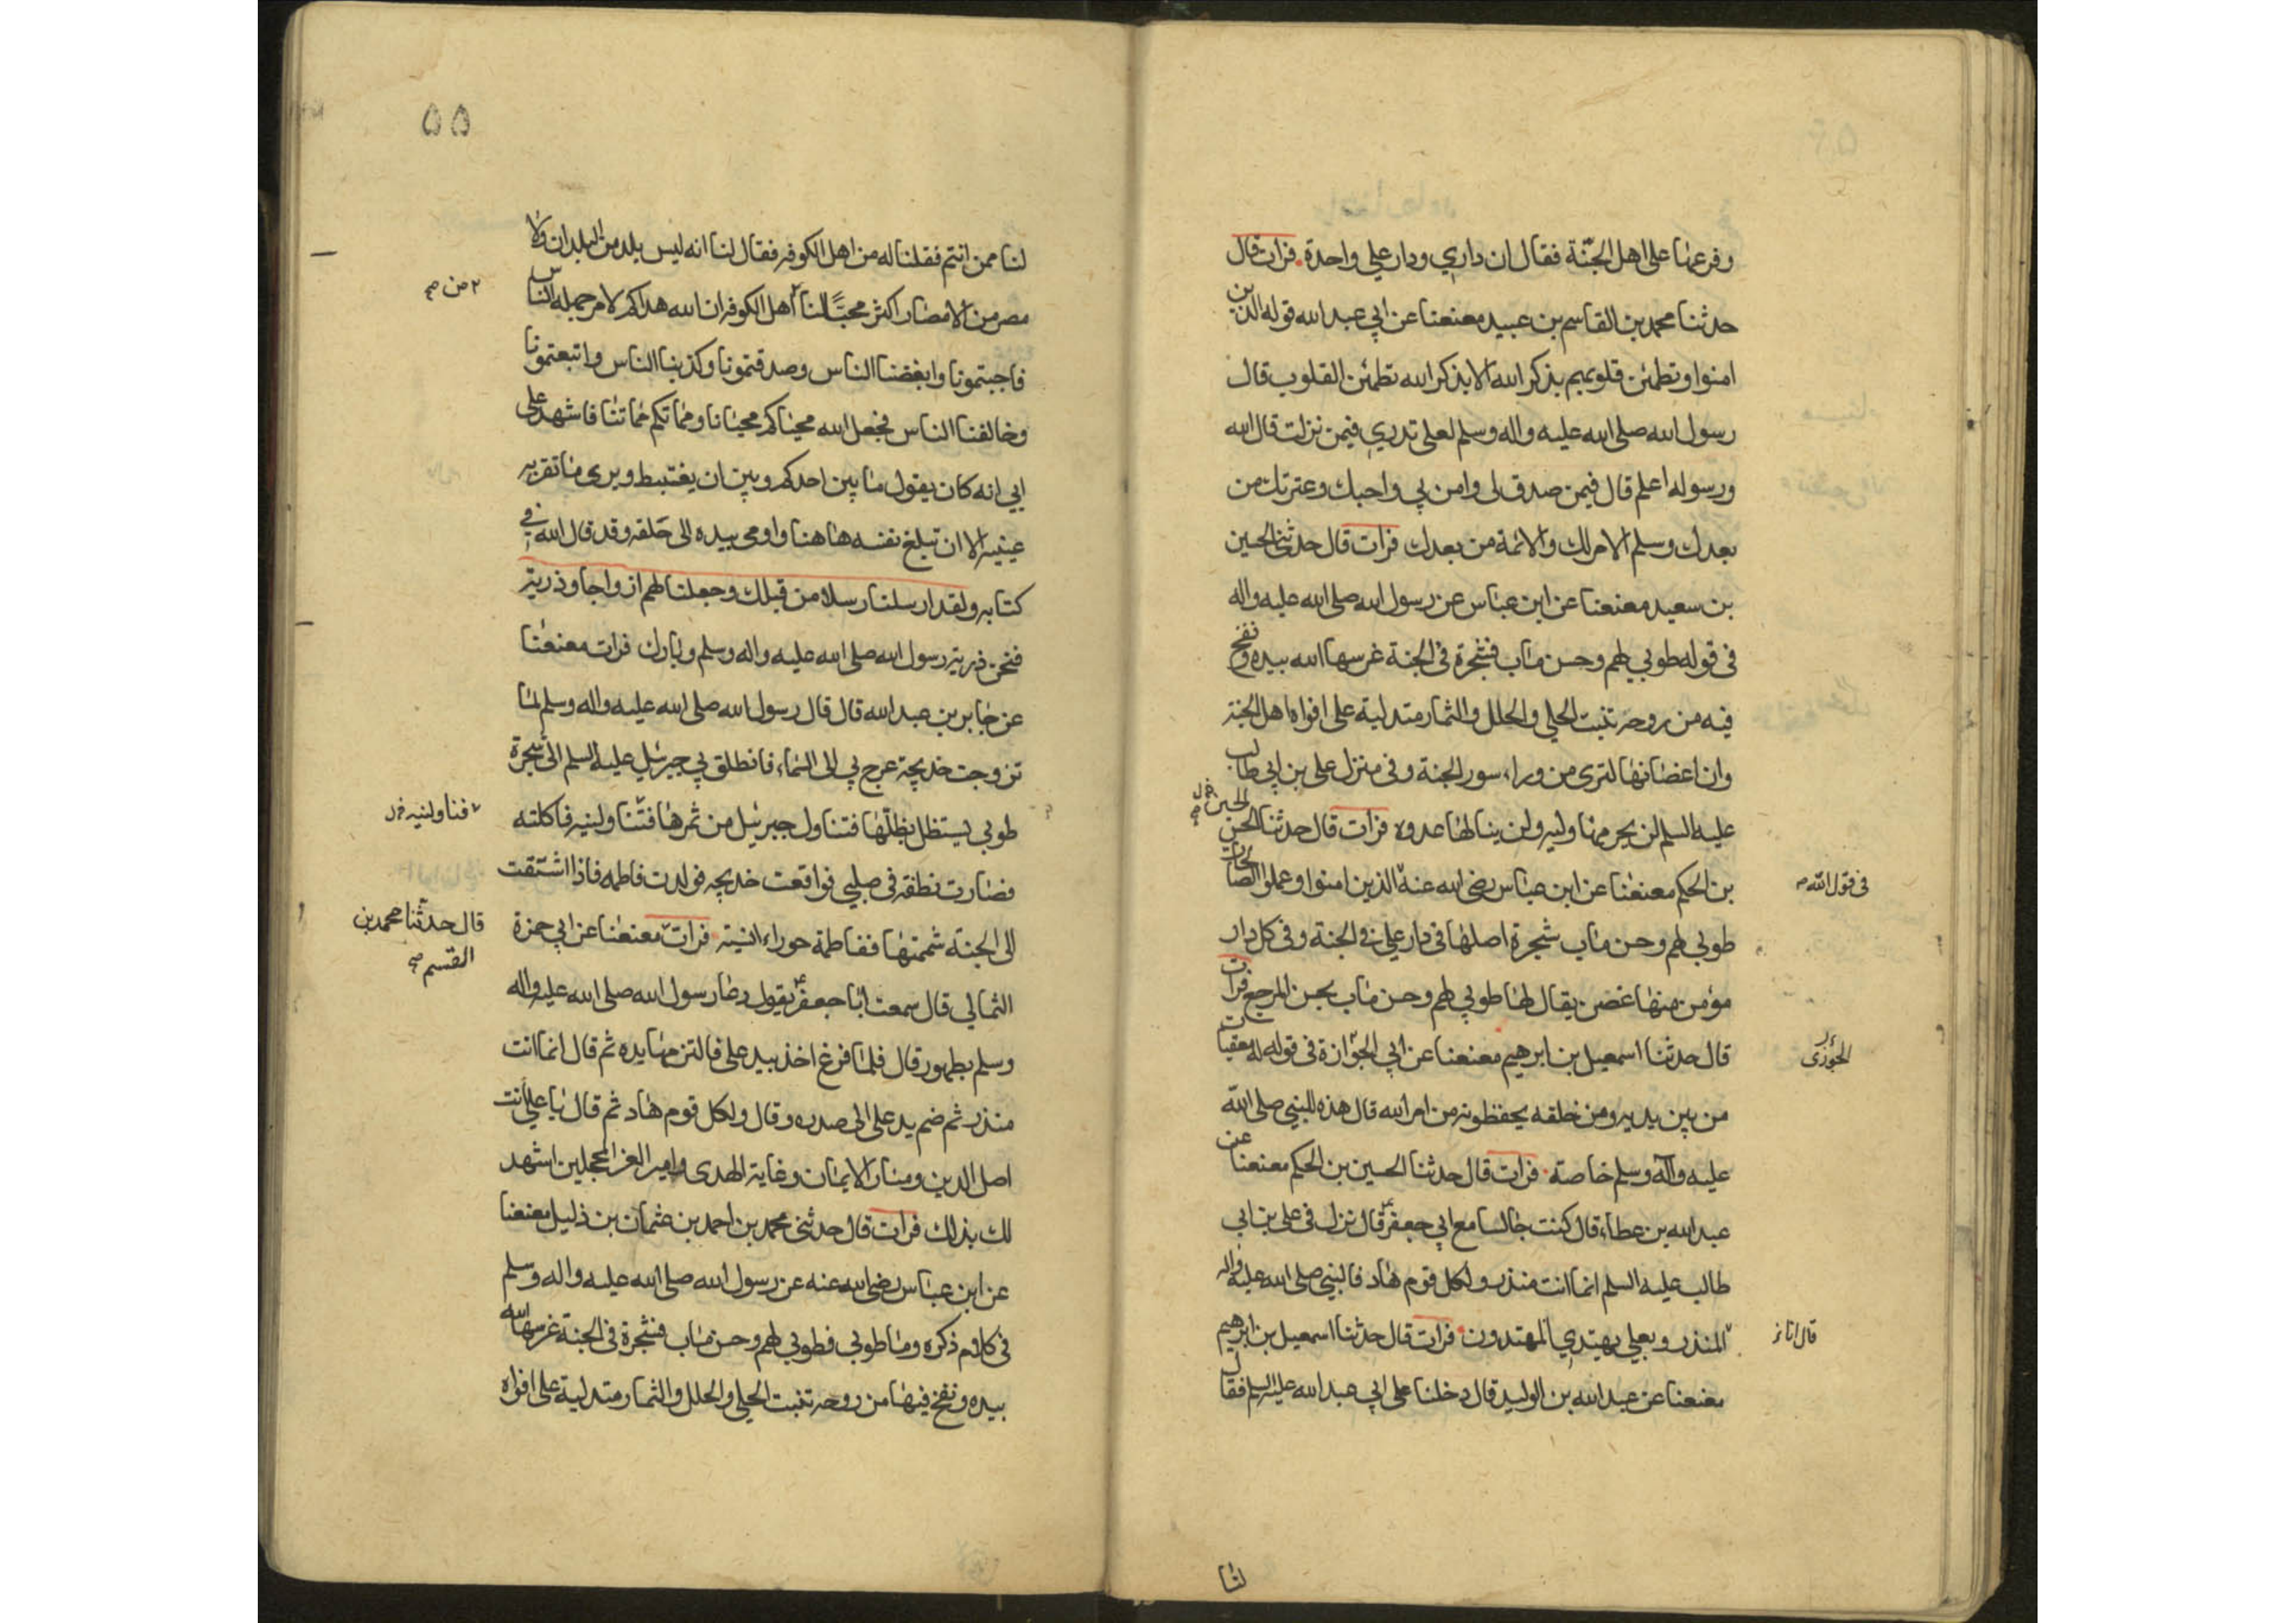 وفرعها على اهل الجنة فقال ان داري ودار علي واحدة . فرات قال
حدثنا محمد بن القاسم بن عبيد معنعنا عن ابي عبد الله قوله الذين
امنوا وتطمئن قلوبهم بذكر الله الا بذكر الله تطمئن القلوب قال
رسول الله صلى الله عليه واله وسلم لعلى تدري فيمن نزلت قال الله
ورسوله اعلم قال فيمن صدق لى وامن بي واحبك وعترتك من
بعدك وسلم الامر لك والائمة من بعدك فرات قال حدثنا الحسين
بن سعيد معنعنا عن ابن عباس عن رسول الله صلى الله عليه واله
فى قوله طوبي لهم وحسن ماب فشجرة فى الجنة غرسها الله بيده ونفخ
فيه من روحه تنبت الحلي والحلل والثمار متدلية على افواه اهل الجنة
وان اغصانها لترى من وراء سور الجنة وفى منزل على بن ابي طالب
عليه السلم لن يحرمها وليه ولن ينالها عدوه فرات قال حدثنا الحسن
الحسين
بن الحكم معنعنا عن ابن عباس رضى الله عنه الذين امنوا وعملوا الصالحات
فى قول الله
طوبي لهم وحسن ماب شجرة اصلها فى دار علي فى الجنة وفى كل دار
مؤمن منها غصن يقال لها طوبي لهم وحسن ماب بحسن المرجع فرات
قال حدثنا اسمعيل بن ابرهيم معنعنا عن ابي الجوازة فى قوله له معقبات
الجوزى
من بين يديه ومن خلفه يحفظونه من امر الله قال هذه للنبي صلى الله
عليه واله وسلم خاصة . فرات قال حدثنا الحسين بن الحكم معنعنا عن
عبد الله بن عطاء قال كنت جالسا مع ابي جعفر قال نزل فى على بن ابي
طالب عليه السلم انما انت منذر ولكل قوم هاد فالنبي صلى الله عليه واله
المنذر وبعلي يهتدي المهتدون فرات قال حدثنا اسمعيل بن ابرهيم
قال انا
معنعنا عن عبد الله بن الوليد قال دخلنا على ابي عبد الله عليه السلم فقال
لنا
٥٥
لنا ممن انتم فقلنا له من اهل الكوفه فقال لنا انه ليس بلد من البلدان ولا
مصر من الامصار اكثر محبا لنا اهل الكوفه ان الله هداكم لامر جهله الناس
من
فاجبتمونا وابغضنا الناس وصدقتمونا وكذبنا الناس واتبعتمونا
وخالفنا الناس فجعل الله محياكم محيانا ومماتكم مماتنا فاشهد على
ابي انه كان يقول ما بين احدكم وبين ان يغتبط ويرى ما تقر به
عينيه الا ان تبلغ نفسه هاهنا واومى بيده الى حلقه وقد قال الله في
كتابه ولقد ارسلنا رسلا من قبلك وجعلنا لهم ازواجا وذرية
فنحن ذرية رسول الله صلى الله عليه واله وسلم وبارك فرات معنعنا
عن جابر بن عبد الله قال قال رسول الله صلى الله عليه واله وسلم لما
تزوجت خديجة عرج بي الى السماء فانطلق بي جبرئيل عليه السلم الى شجرة
طوبي ليستظل بظلها فتناول جبرئيل من ثمرها فتناولنيه فاكلته
فناولنيه
فصارت نطفة فى صلبي فواقعت خديجه فولدت فاطمه فاذا اشتقت
الى الجنة شممتها ففاطمة حوراء انسية فرات معنعنا عن ابي حمزة
قال حدثنا محمد بن
القسم
الثمالي قال سمعت ابا جعفر يقول دعا رسول الله صلى الله عليه واله
وسلم بطهور قال فلما فرغ اخذ بيد على فالتزمها يده ثم قال انما انت
منذر ثم ضم يد على الى صدره وقال ولكل قوم هاد ثم قال يا علي انت
اصل الدين ومنار الايمان وغاية الهدى وامير الغر المحجلين اشهد
لك بذلك فرات قال حدثنى محمد بن احمد بن عثمان بن ذليل معنعنا
عن ابن عباس رضى الله عنه عن رسول الله صلى الله عليه واله وسلم
فى كلام ذكره وما طوبي فطوبي لهم وحسن ماب فشجرة فى الجنة غرسها الله
بيده ونفخ فيها من روحه تنبت الحلي والحلل والثمار متدلية على افواه